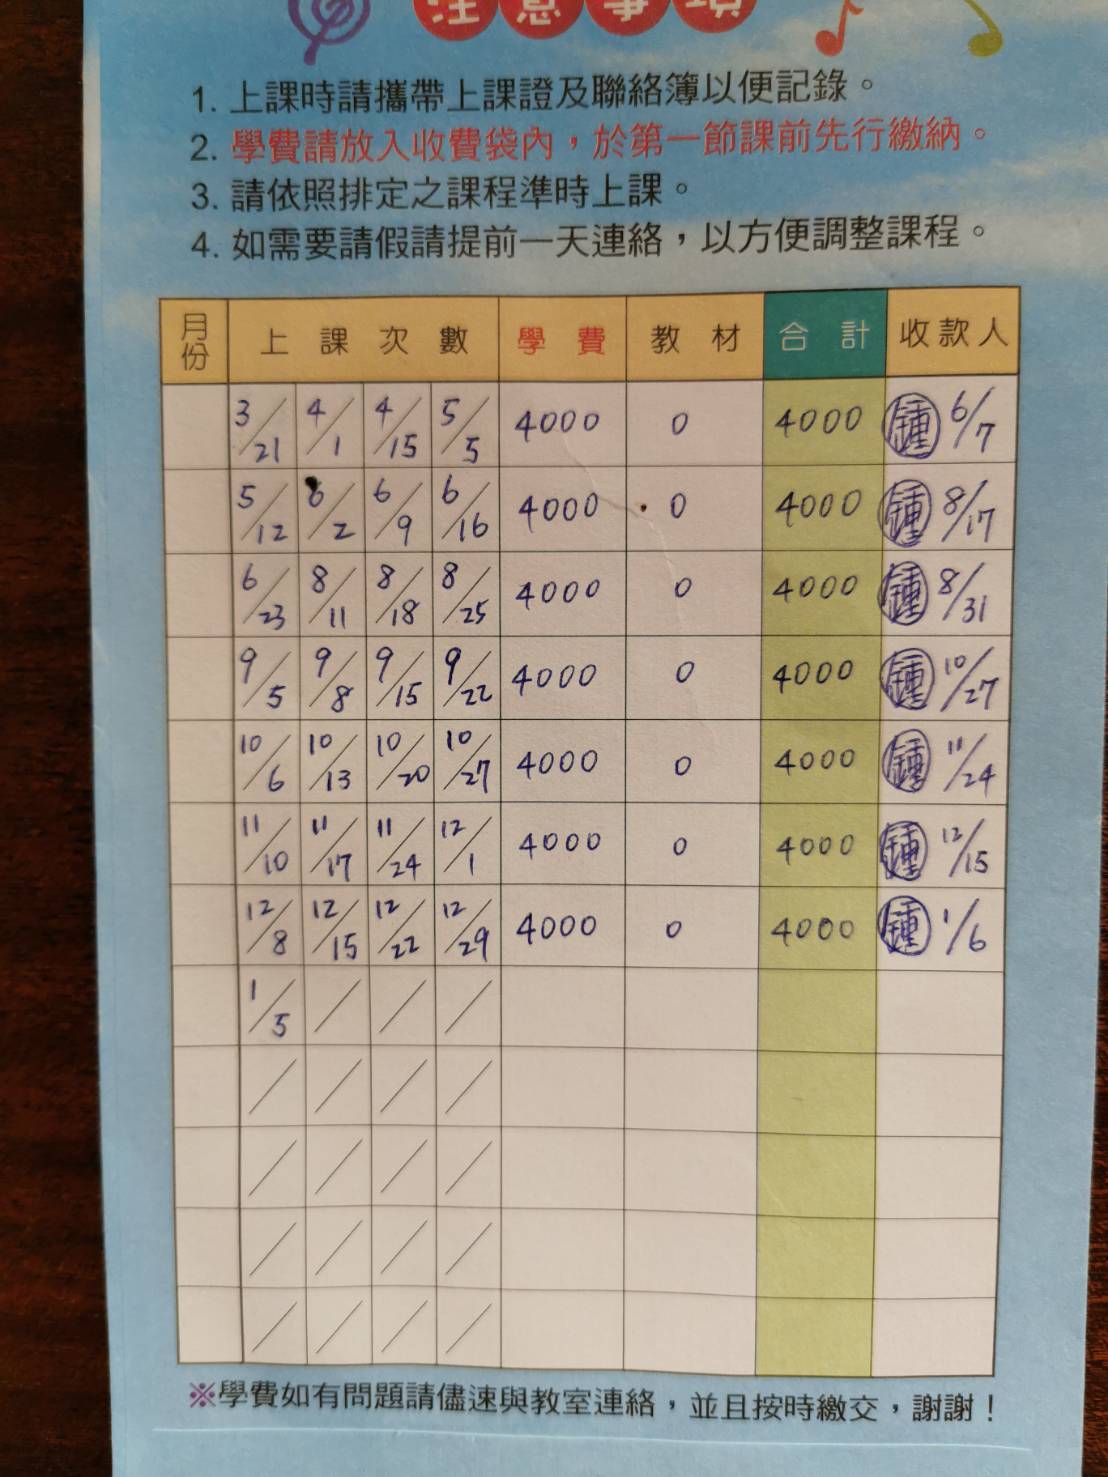 注意事項
1. 上課時請攜帶上課證及聯絡簿以便記錄。
2. 學費請放入收費袋內，於第一節課前先行繳納。
3. 請依照排定之課程準時上課。
4. 如需要請假請提前一天連絡，以方便調整課程。
月份 上課次數 學費 教材 合計 收款人
3/21 4/1 4/15 5/5 4000 0 4000 鍾 6/7
5/12 6/2 6/9 6/16 4000 0 4000 鍾 8/17
6/23 8/11 8/18 8/25 4000 0 4000 鍾 8/31
9/5 9/8 9/15 9/22 4000 0 4000 鍾 10/27
10/6 10/13 10/20 10/27 4000 0 4000 鍾 11/24
11/10 11/17 11/24 12/1 4000 0 4000 鍾 12/15
12/8 12/15 12/22 12/29 4000 0 4000 鍾 1/6
1/5 / / /
/ / / /
/ / / /
/ / / /
/ / / /
※學費如有問題請儘速與教室連絡，並且按時繳交，謝謝！